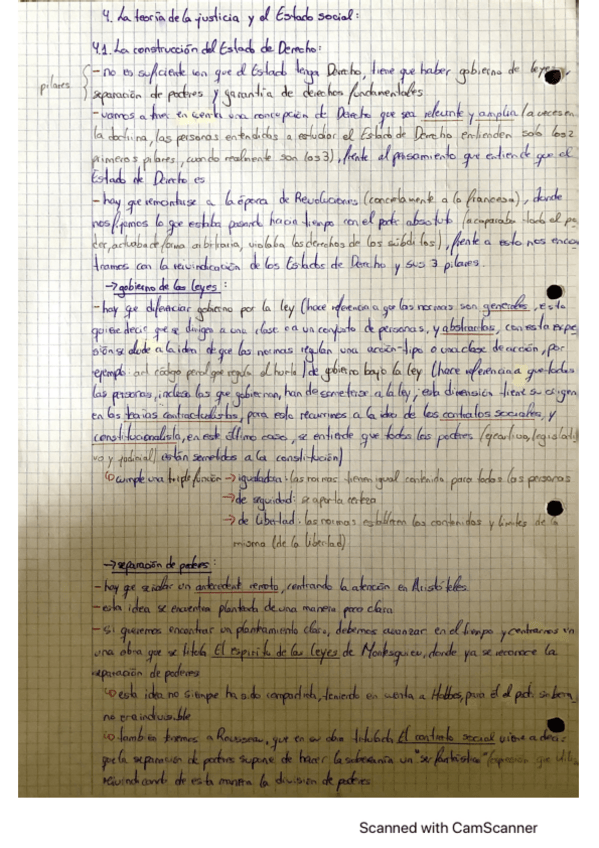 4. La teoría de la justicia y el Estado social:
4.1. La construcción del Estado de Derecho:
pilares
- no es suficiente con que el Estado tenga Derecho, tiene que haber gobierno de leyes,
separación de poderes y garantía de derechos fundamentales
- vamos a tener en cuenta una concepción de Derecho que sea relevante y amplia (a veces en
la doctrina, las personas entendidas a estudiar el Estado de Derecho entienden solo los 2
primeros pilares, cuando realmente son los 3), frente al pensamiento que entiende que el
Estado de Derecho es
- hay que remontarse a la época de Revoluciones (concretamente a la francesa), donde
nos fijamos lo que estaba pasando hacía tiempo con el poder absoluto (acaparaba todo el po
der, actuaba de forma arbitraria, violaba los derechos de los súbditos), frente a esto nos encon
tramos con la reivindicación de los Estados de Derecho y sus 3 pilares.
→ gobierno de las leyes:
- hay que diferenciar gobierno por la ley (hace referencia a que las normas son generales, esto
quiere decir que se dirigen a una clase o a un conjunto de personas, y abstractas, con esta expre
sión se alude a la idea de que las normas regulan una acción-tipo o una clase de acción, por
ejemplo: art código penal que regula el hurto) de gobierno bajo la ley (hace referencia a que todas
las personas, incluso las que gobiernan, han de someterse a la ley, esta dimensión tiene su origen
en las teorías contractualistas, para esto recurrimos a la idea de los contratos sociales, y
constitucionalista, en este último caso, se entiende que todos los poderes (ejecutivo, legislati
vo y judicial) están sometidos a la constitución)
cumple una triple función → igualadora: las normas tienen igual contenido para todas las personas
→ de seguridad: se aporta certeza
→ de libertad: las normas establecen los contenidos y límites de la
misma (de la libertad)
→ separación de poderes:
- hay que señalar un antecedente remoto, centrando la atención en Aristóteles.
- esta idea se encuentra plantada de una manera poco clara
- si queremos encontrar un planteamiento claro, debemos avanzar en el tiempo y centrarnos en
una obra que se titula El espíritu de las Leyes de Montesquieu, donde ya se reconoce la
separación de poderes
esta idea no siempre ha sido compartida, teniendo en cuenta a Hobbes, para él el poder soberano
no era indivisible
también tenemos a Rousseau, que en su obra titulada El contrato social viene a decir
que la separación de poderes supone de hacer la soberanía un "ser fantástico" (expresión que
reivindicando de esta manera la división de poderes
Scanned with CamScanner